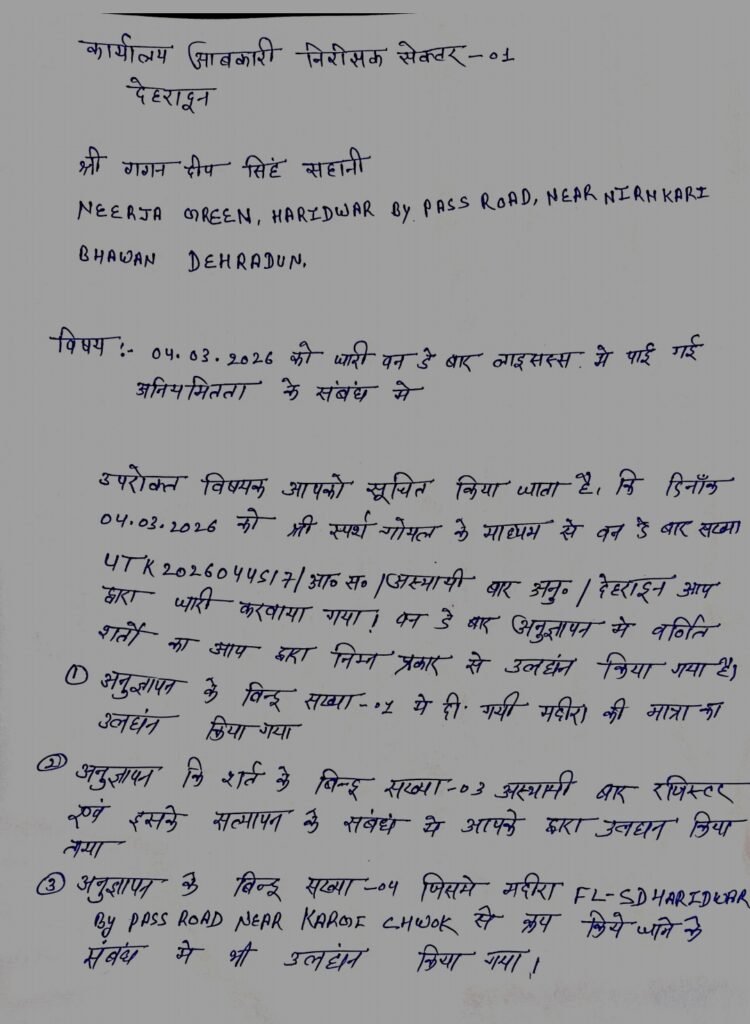 कार्यालय आबकारी निरीसक सेक्टर -01
देहरादून
श्री गगन दीप सिंह सहानी
NEERJA GREEN, HARIDWAR By PASS ROAD, NEAR NIRNKARI
BHAWAN DEHRADUN.
विषय :- 04.03.2026 को जारी वन डे बार लाइसस्स. मे पाई गई
अनियमितता के संबंध मे
उपरोक्त विषयक आपको सूचित किया जाता है, कि दिनाँक
04.03.2026 को श्री स्पर्श गोयल के माध्यम से वन डे बार सख्या
UTK2026044517/आ० स० /अस्थायी बार अनु० / देहरादून आप
द्वारा जारी करवाया गया। वन डे बार अनुज्ञापन मे वर्णित
शर्तो का आप द्वारा निम्न प्रकार से उलघंन किया गया है,
① अनुज्ञापन के बिन्दू सख्या -01 मे दी. गयी मदीरा की मात्रा का
उलघंन किया गया
② अनुज्ञापन कि शर्त के बिन्दू सख्या -03 अस्थायी बार रजिस्टर
एवं इसके सत्यापन के संबंध मे आपके द्वारा उलघंन किया
गया
③ अनुज्ञापन के बिन्दू सख्या -04 जिसमे मदीरा FL-5D HARIDWAR
By PASS ROAD NEAR KARGI CHWOK से क्रय किये जाने के
संबंध मे भी उलघंन किया गया।